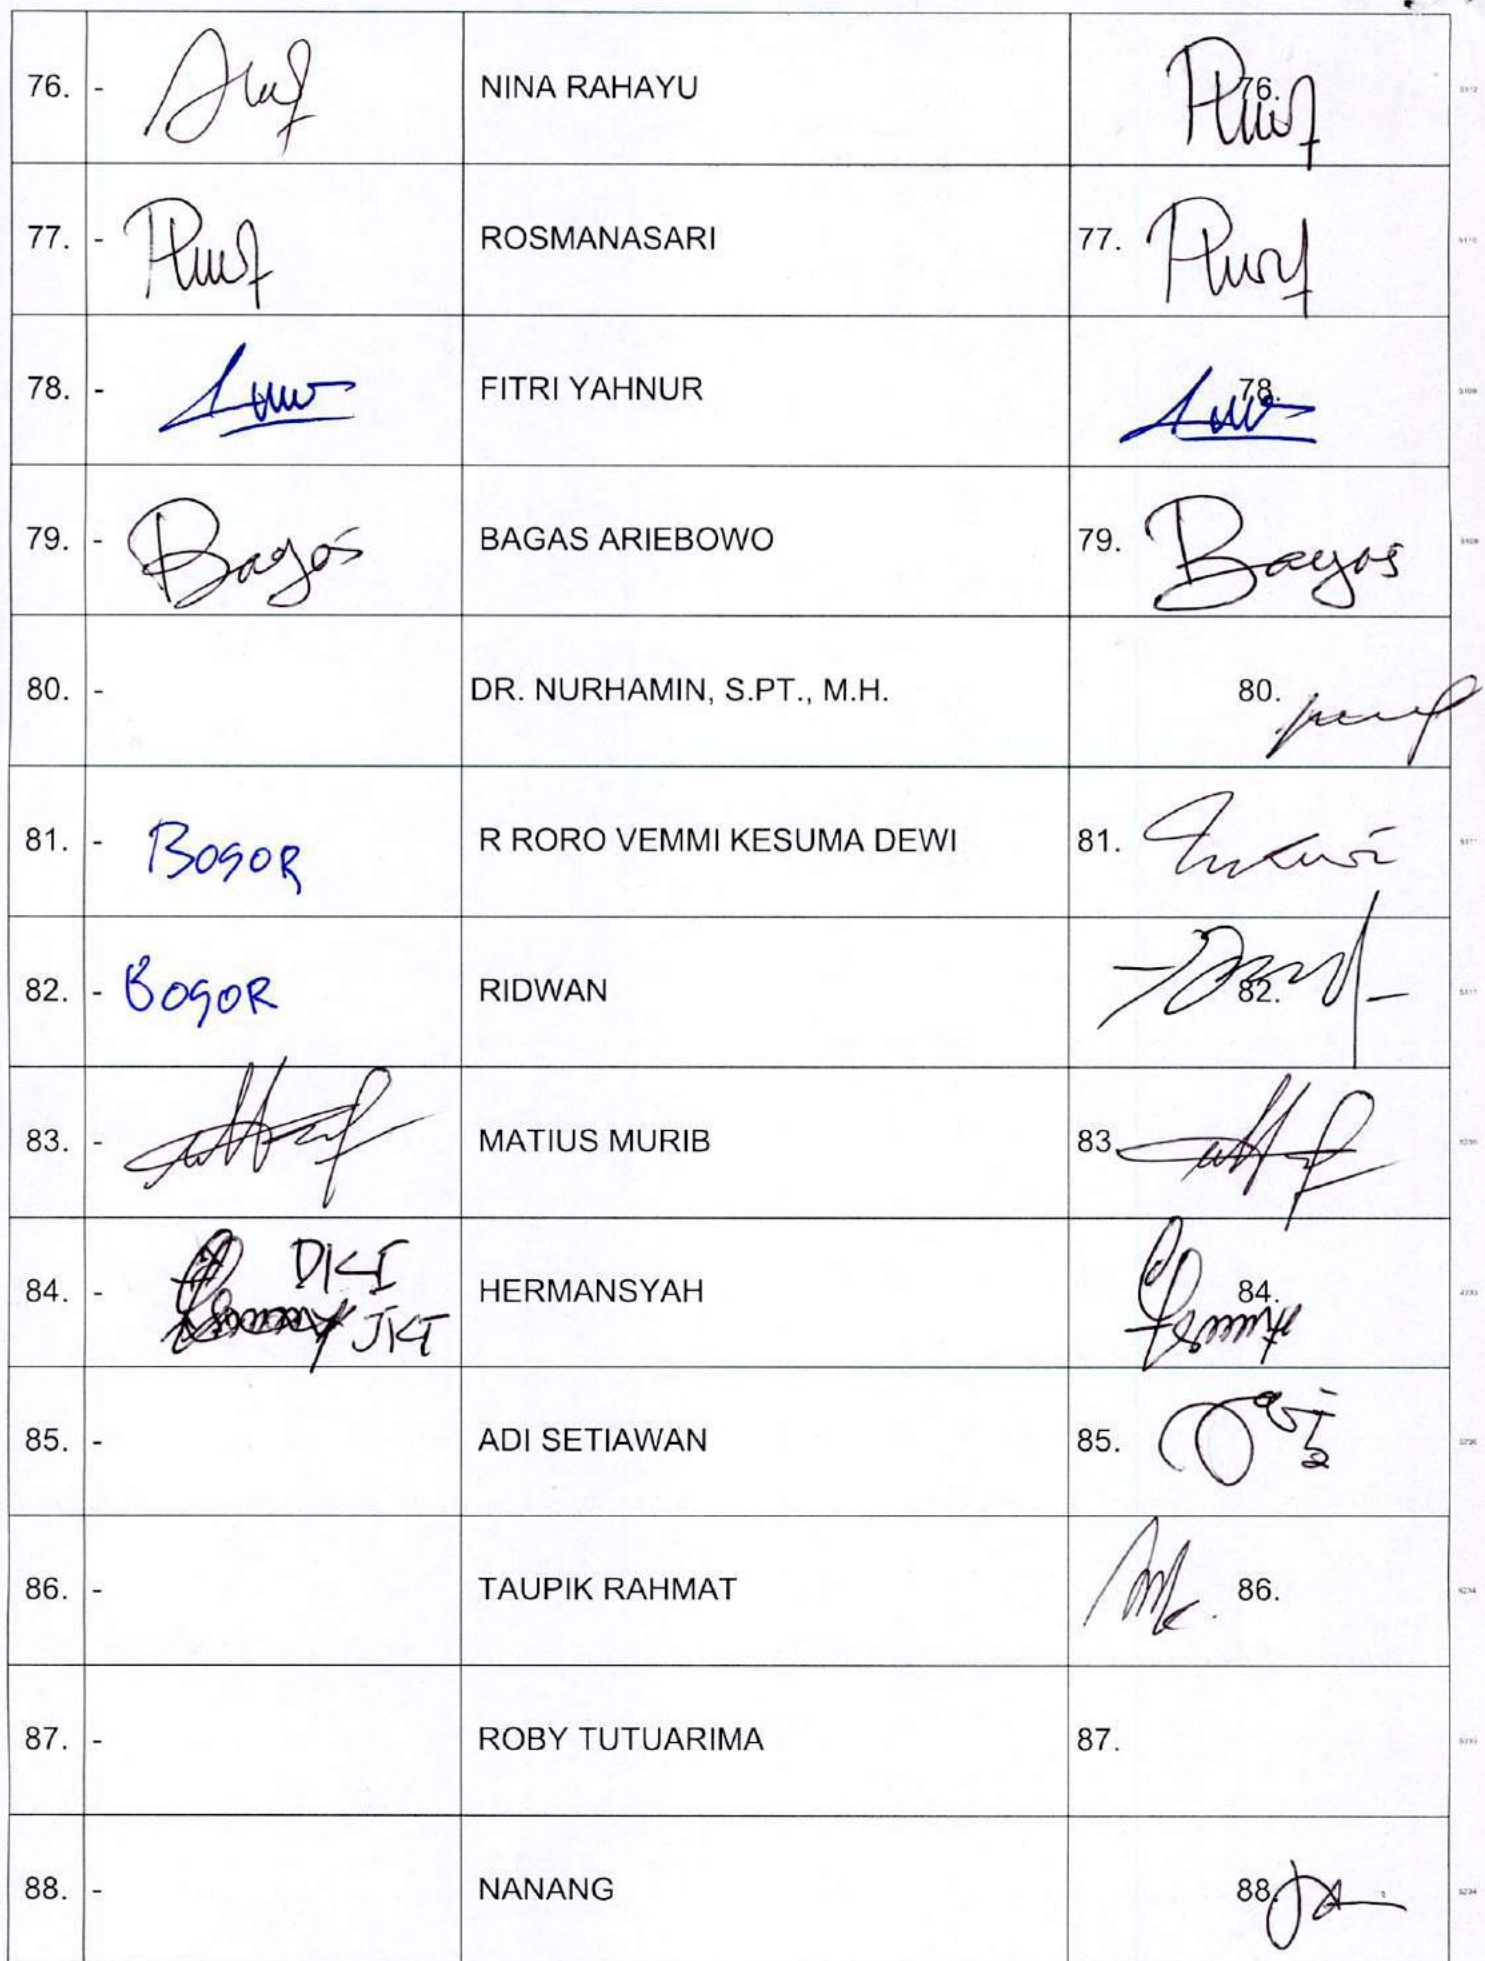 76. - NINA RAHAYU 76.
77. - ROSMANASARI 77.
78. - FITRI YAHNUR 78.
79. - Bagas BAGAS ARIEBOWO 79. Bagas
80. - DR. NURHAMIN, S.PT., M.H. 80.
81. - BOGOR R RORO VEMMI KESUMA DEWI 81.
82. - BOGOR RIDWAN 82.
83. - MATIUS MURIB 83.
84. - DKI JKT HERMANSYAH 84.
85. - ADI SETIAWAN 85.
86. - TAUPIK RAHMAT 86.
87. - ROBY TUTUARIMA 87.
88. - NANANG 88.